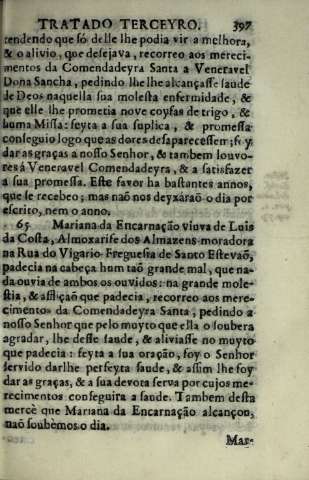 TRATADO TERCEYRO. 397
tendendo que só delle lhe podia vir a melhora,
& o alivio, que desejava, recorreo aos mereci-
mentos da Comendadeyra Santa a Veneravel
Dona Sancha, pedindo lhe lhe alcançasse saude
de Deos naquella sua molesta enfermidade, &
que elle lhe prometia nove coyfas de trigo, &
huma Missa: feyta a sua suplica, & promessa
conseguio logo que as dores desaparecessem; fi y
dar as graças a nosso Senhor, & tambem louvo-
res á Veneravel Comendadeyra, & a satisfazer
a sua promessa. Este favor ha bastantes annos,
que se recebeo; mas naõ nos deyxàraõ o dia por
escrito, nem o anno.
65. Mariana da Encarnação viuva de Luis
da Costa, Almoxarife dos Almazens moradora
na Rua do Vigario Freguesia de Santo Estevaõ,
padecia na cabeça hum taõ grande mal, que na-
da ouvia de ambos os ouvidos: na grande mole-
stia, & aflição que padecia, recorreo aos mere-
cimentos da Comendadeyra Santa, pedindo a
nosso Senhor que pelo muyto que ella o soubera
agradar, lhe desse saude, & aliviasse no muyto
que padecia: feyta a sua oração, foy o Senhor
servido darlhe perfeyta saude, & assim lhe foy
dar as graças, & a sua devota serva por cujos me-
recimentos conseguira a saude. Tambem desta
mercè que Mariana da Encarnação alcançou,
naõ soubèmos o dia.
Mar-